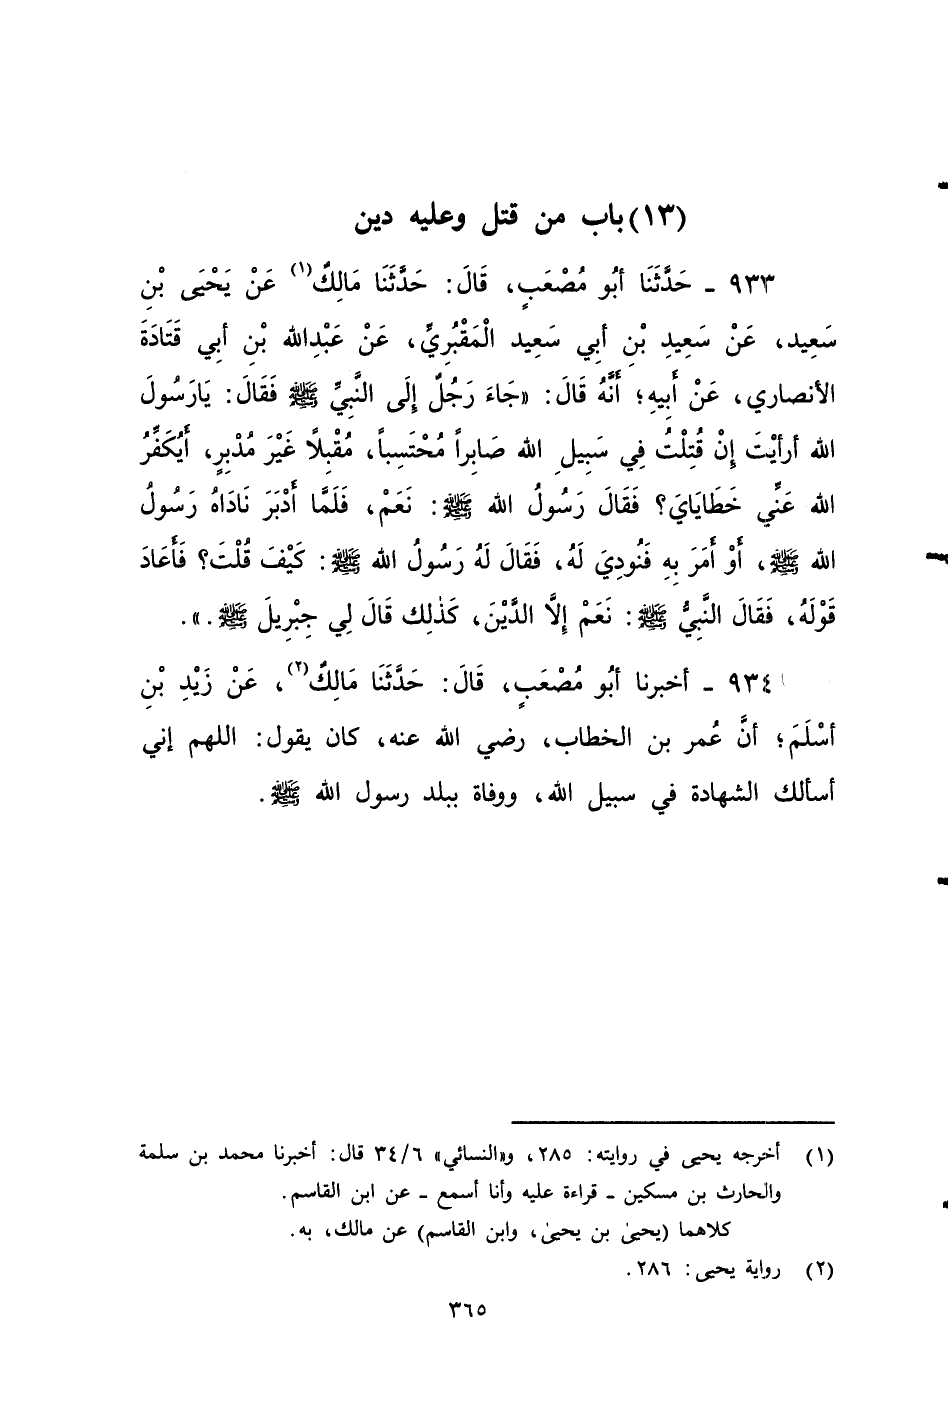 (١٣) باب من قتل وعليه دين
٩٣٣ ـ حَدَّثَنَا أبُو مُصْعَبٍ، قَالَ: حَدَّثَنَا مَالِكٌ(١) عَنْ يَحْيَى بْنِ
سَعِيد، عَنْ سَعِيدِ بْنِ أبي سَعِيد الْمَقْبُرِيِّ، عَنْ عَبْدِالله بْنِ أبي قَتَادَةَ
الأنصاري، عَنْ أَبِيهِ؛ أَنَّهُ قَالَ: «جَاءَ رَجُلٌ إِلَى النَّبِيِّ ﷺ فَقَالَ: يَارَسُولَ
الله أرأيْتَ إِنْ قُتِلْتُ فِي سَبِيلِ الله صَابِراً مُحْتَسِباً، مُقْبِلاً غَيْرَ مُدْبِرٍ، أَيُكَفِّرُ
الله عَنِّي خَطَايَايَ؟ فَقَالَ رَسُولُ الله ﷺ: نَعَمْ، فَلَمَّا أَدْبَرَ نَادَاهُ رَسُولُ
الله ﷺ، أَوْ أَمَرَ بِهِ فَنُودِيَ لَهُ، فَقَالَ لَهُ رَسُولُ الله ﷺ: كَيْفَ قُلْتَ؟ فَأَعَادَ
قَوْلَهُ، فَقَالَ النَّبِيُّ ﷺ: نَعَمْ إِلَّا الدَّيْنَ، كَذٰلِك قَالَ لِي جِبْرِيلَ ﷺ.».
٩٣٤ ـ أخبرنا أبُو مُصْعَبٍ، قَالَ: حَدَّثَنَا مَالِكٌ(٢)، عَنْ زَيْدِ بْنِ
أسْلَمَ؛ أنَّ عُمر بن الخطاب، رضي الله عنه، كان يقول: اللهم إني
أسألك الشهادة في سبيل الله، ووفاة ببلد رسول الله ﷺ.
(١) أخرجه يحيى في روايته: ٢٨٥، و«النسائي» ٣٤/٦ قال: أخبرنا محمد بن سلمة
والحارث بن مسكين ـ قراءة عليه وأنا أسمع ـ عن ابن القاسم.
كلاهما (يحيىٰ بن يحيىٰ، وابن القاسم) عن مالك، به.
(٢) رواية يحيى: ٢٨٦.
٣٦٥